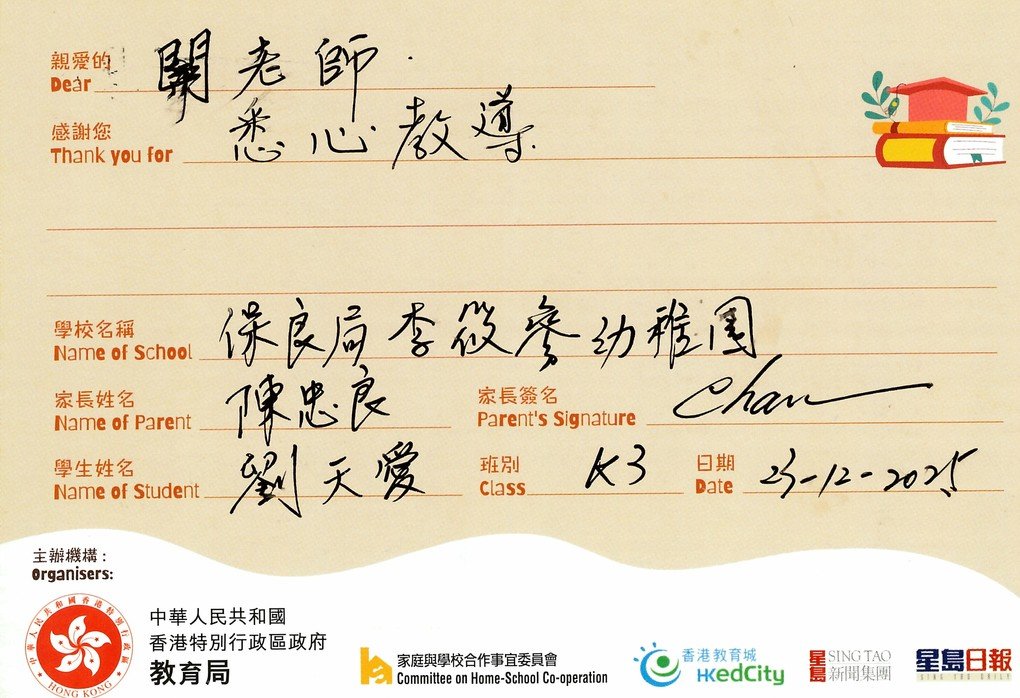 親愛的
Dear 關老師
感謝您
Thank you for 悉心教導
學校名稱
Name of School 保良局李筱參幼稚園
家長姓名 家長簽名
Name of Parent 陳忠良 Parent's Signature Chan
學生姓名 班別 日期
Name of Student 劉天愛 Class K3 Date 23-12-2025
主辦機構：
Organisers:
中華人民共和國
香港特別行政區政府
教育局
中華人民共和國香港特別行政區
HONG KONG
家庭與學校合作事宜委員會
Committee on Home-School Co-operation
香港教育城
HKedCity
星島 SING TAO
新聞集團
星島日報
SING TAO DAILY